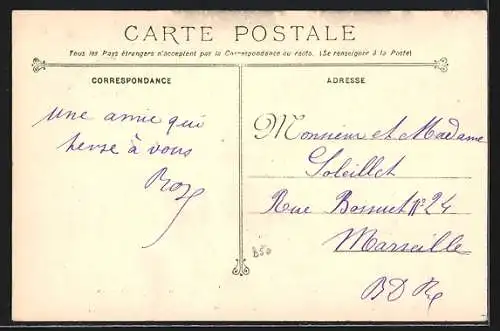 CARTE POSTALE
Tous les Pays étrangers n'acceptent pas la Correspondance au recto. (Se renseigner à la Poste)
CORRESPONDANCE
ADRESSE
une amie qui
pense à vous
Monsieur et Madame
Soleillet
Rue Bossuet N° 24
Marseille
B D R
B50